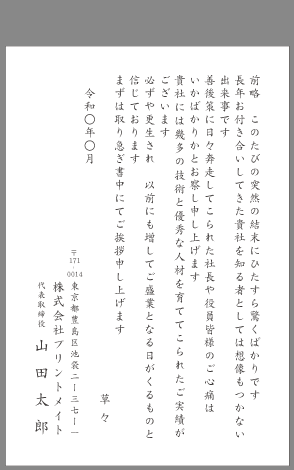 前略　このたびの突然の結末にひたすら驚くばかりです
長年お付き合いしてきた貴社を知る者としては想像もつかない
出来事です
善後策に日々奔走してこられた社長や役員皆様のご心痛は
いかばかりかとお察し申し上げます
貴社には幾多の技術と優秀な人材を育ててこられたご実績が
ございます
必ずや更生され　以前にも増してご盛業となる日がくるものと
信じております
まずは取り急ぎ書中にてご挨拶申し上げます
草々
令和〇年〇月
〒171-0014
東京都豊島区池袋二－三七－一
株式会社プリントメイト
代表取締役　山田太郎